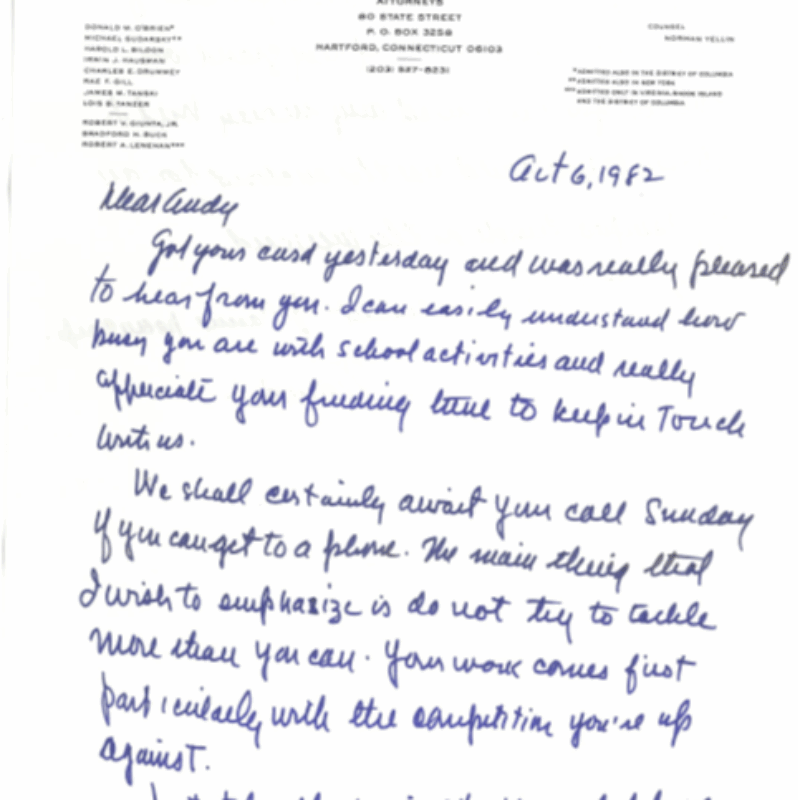 ATTORNEYS
80 STATE STREET
P. O. BOX 3258
HARTFORD, CONNECTICUT 06103
(203) 527-8231
DONALD M. O'BRIEN*
MICHAEL SUDARSKY**
HAROLD L. BILDON
IRWIN J. HAUSMAN
CHARLES E. DRUMMEY
RAE F. GILL
JAMES M. TANSKI
LOIS B. TANZER
ROBERT V. GIUNTA, JR.
BRADFORD H. BUCK
ROBERT A. LENEHAN***
COUNSEL
NORMAN YELLIN
*ADMITTED ALSO IN THE DISTRICT OF COLUMBIA
**ADMITTED ALSO IN NEW YORK
***ADMITTED ONLY IN VIRGINIA, RHODE ISLAND
AND THE DISTRICT OF COLUMBIA
Oct 6, 1982
Dear Andy
Got your card yesterday and was really pleased
to hear from you. I can easily understand how
busy you are with school activities and really
appreciate your finding time to keep in Touch
with us.
We shall certainly await your call Sunday
if you can get to a phone. The main thing that
I wish to emphasize is do not try to tackle
more than you can. Your work comes first
particularly with the competition you're up
against.